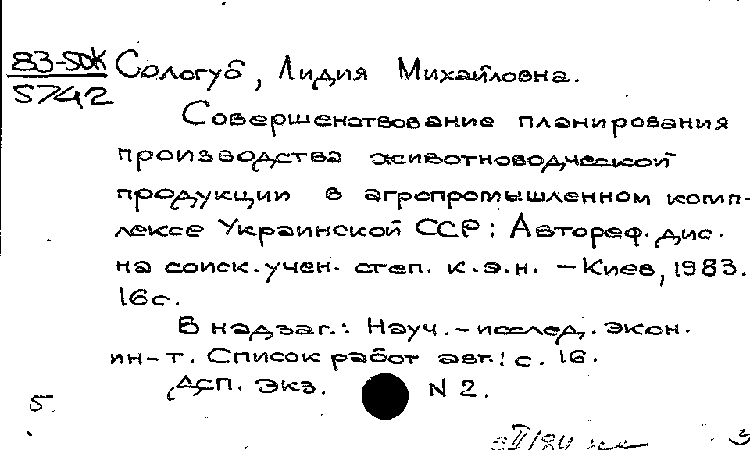 83-5DK Сологуб, Лидия Михайловна.
5742
Совершенствование планирования
производства животноводческой
продукции в агропромышленном комп-
лексе Украинской ССР: Автореф. дис.
на соиск. учен. степ. к.э.н. – Киев, 1983.
16 с.
В надзаг.: Науч.-исслед. экон.
ин-т. Список работ авт.: с. 16.
Дсп. экз. N 2.
5.